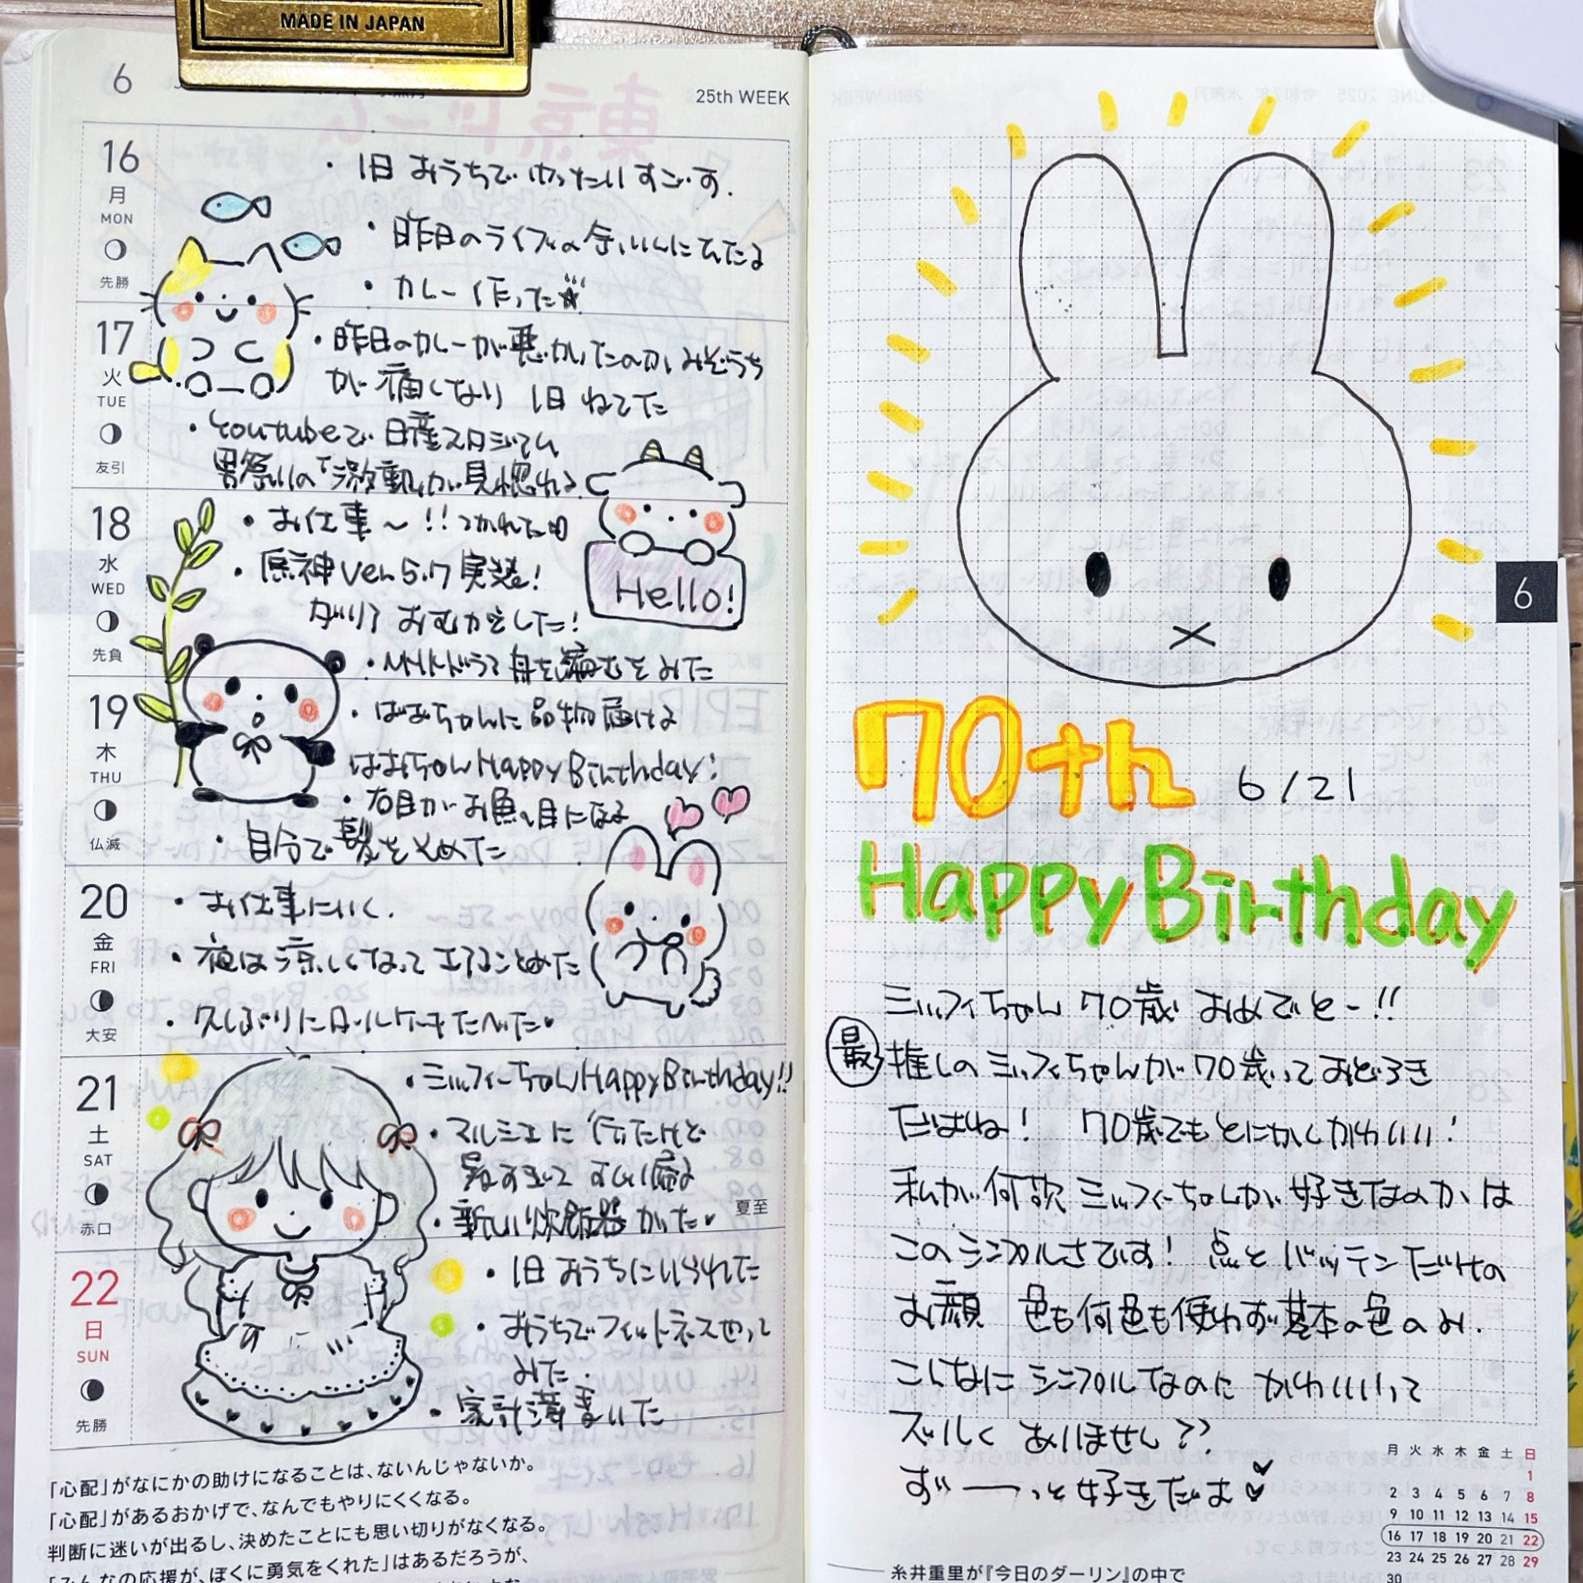 MADE IN JAPAN
6
25th WEEK
16
月
MON
先勝
・1日 おうちで ゆったりすごす.
・昨日のライブの余いんにひたる
・カレー作った
17
火
TUE
友引
・昨日のカレーが悪かったのか みぞうち
が痛くなり 1日 ねてた
・Youtubeで 日産スタジアム
男祭りの「激動」が見惚れる
18
水
WED
先負
・お仕事〜!! つかれた
・原神 Ver.5.7 実装!
おむかえした!
・NHKドラマ 舟を編むをみた
Hello!
19
木
THU
仏滅
・ばあちゃんに 品物届ける
ばあちゃん Happy Birthday!
・右目がお魚の目になる
・自分で髪をそめた
20
金
FRI
大安
・お仕事にいく.
・夜は涼しくなって エアコンとめた
・久しぶりにロールケーキたべた
21
土
SAT
赤口
・ミッフィーちゃん Happy Birthday!!
・マルシェに 行ったけど
暑すぎて すぐに帰る
・新しい炊飯器 かった
夏至
22
日
SUN
先勝
・1日 おうちにいられた
・おうちでフィットネスやって
みた.
・家計簿書いた
「心配」がなにかの助けになることは、ないんじゃないか。
「心配」があるおかげで、なんでもやりにくくなる。
判断に迷いが出るし、決めたことにも思い切りがなくなる。
「みんなの応援が、ぼくに勇気をくれた」はあるだろうが、
6
70th 6/21
Happy Birthday
ミッフィちゃん 70歳 おめでとー!!
最推しの ミッフィちゃんが 70歳って おどろき
だよね! 70歳でも とにかくかわいい!
私が何故 ミッフィーちゃんが 好きなのかは
このシンプルさです! 点と バッテンだけの
お顔 色も何色も使わず 基本の色のみ.
こんなに シンプルなのに かわいいって
ズルく ありませんか??
ずーーっと好きだよ
月 火 水 木 金 土 日
1
2 3 4 5 6 7 8
9 10 11 12 13 14 15
16 17 18 19 20 21 22
23 24 25 26 27 28 29
30
糸井重里が『今日のダーリン』の中で